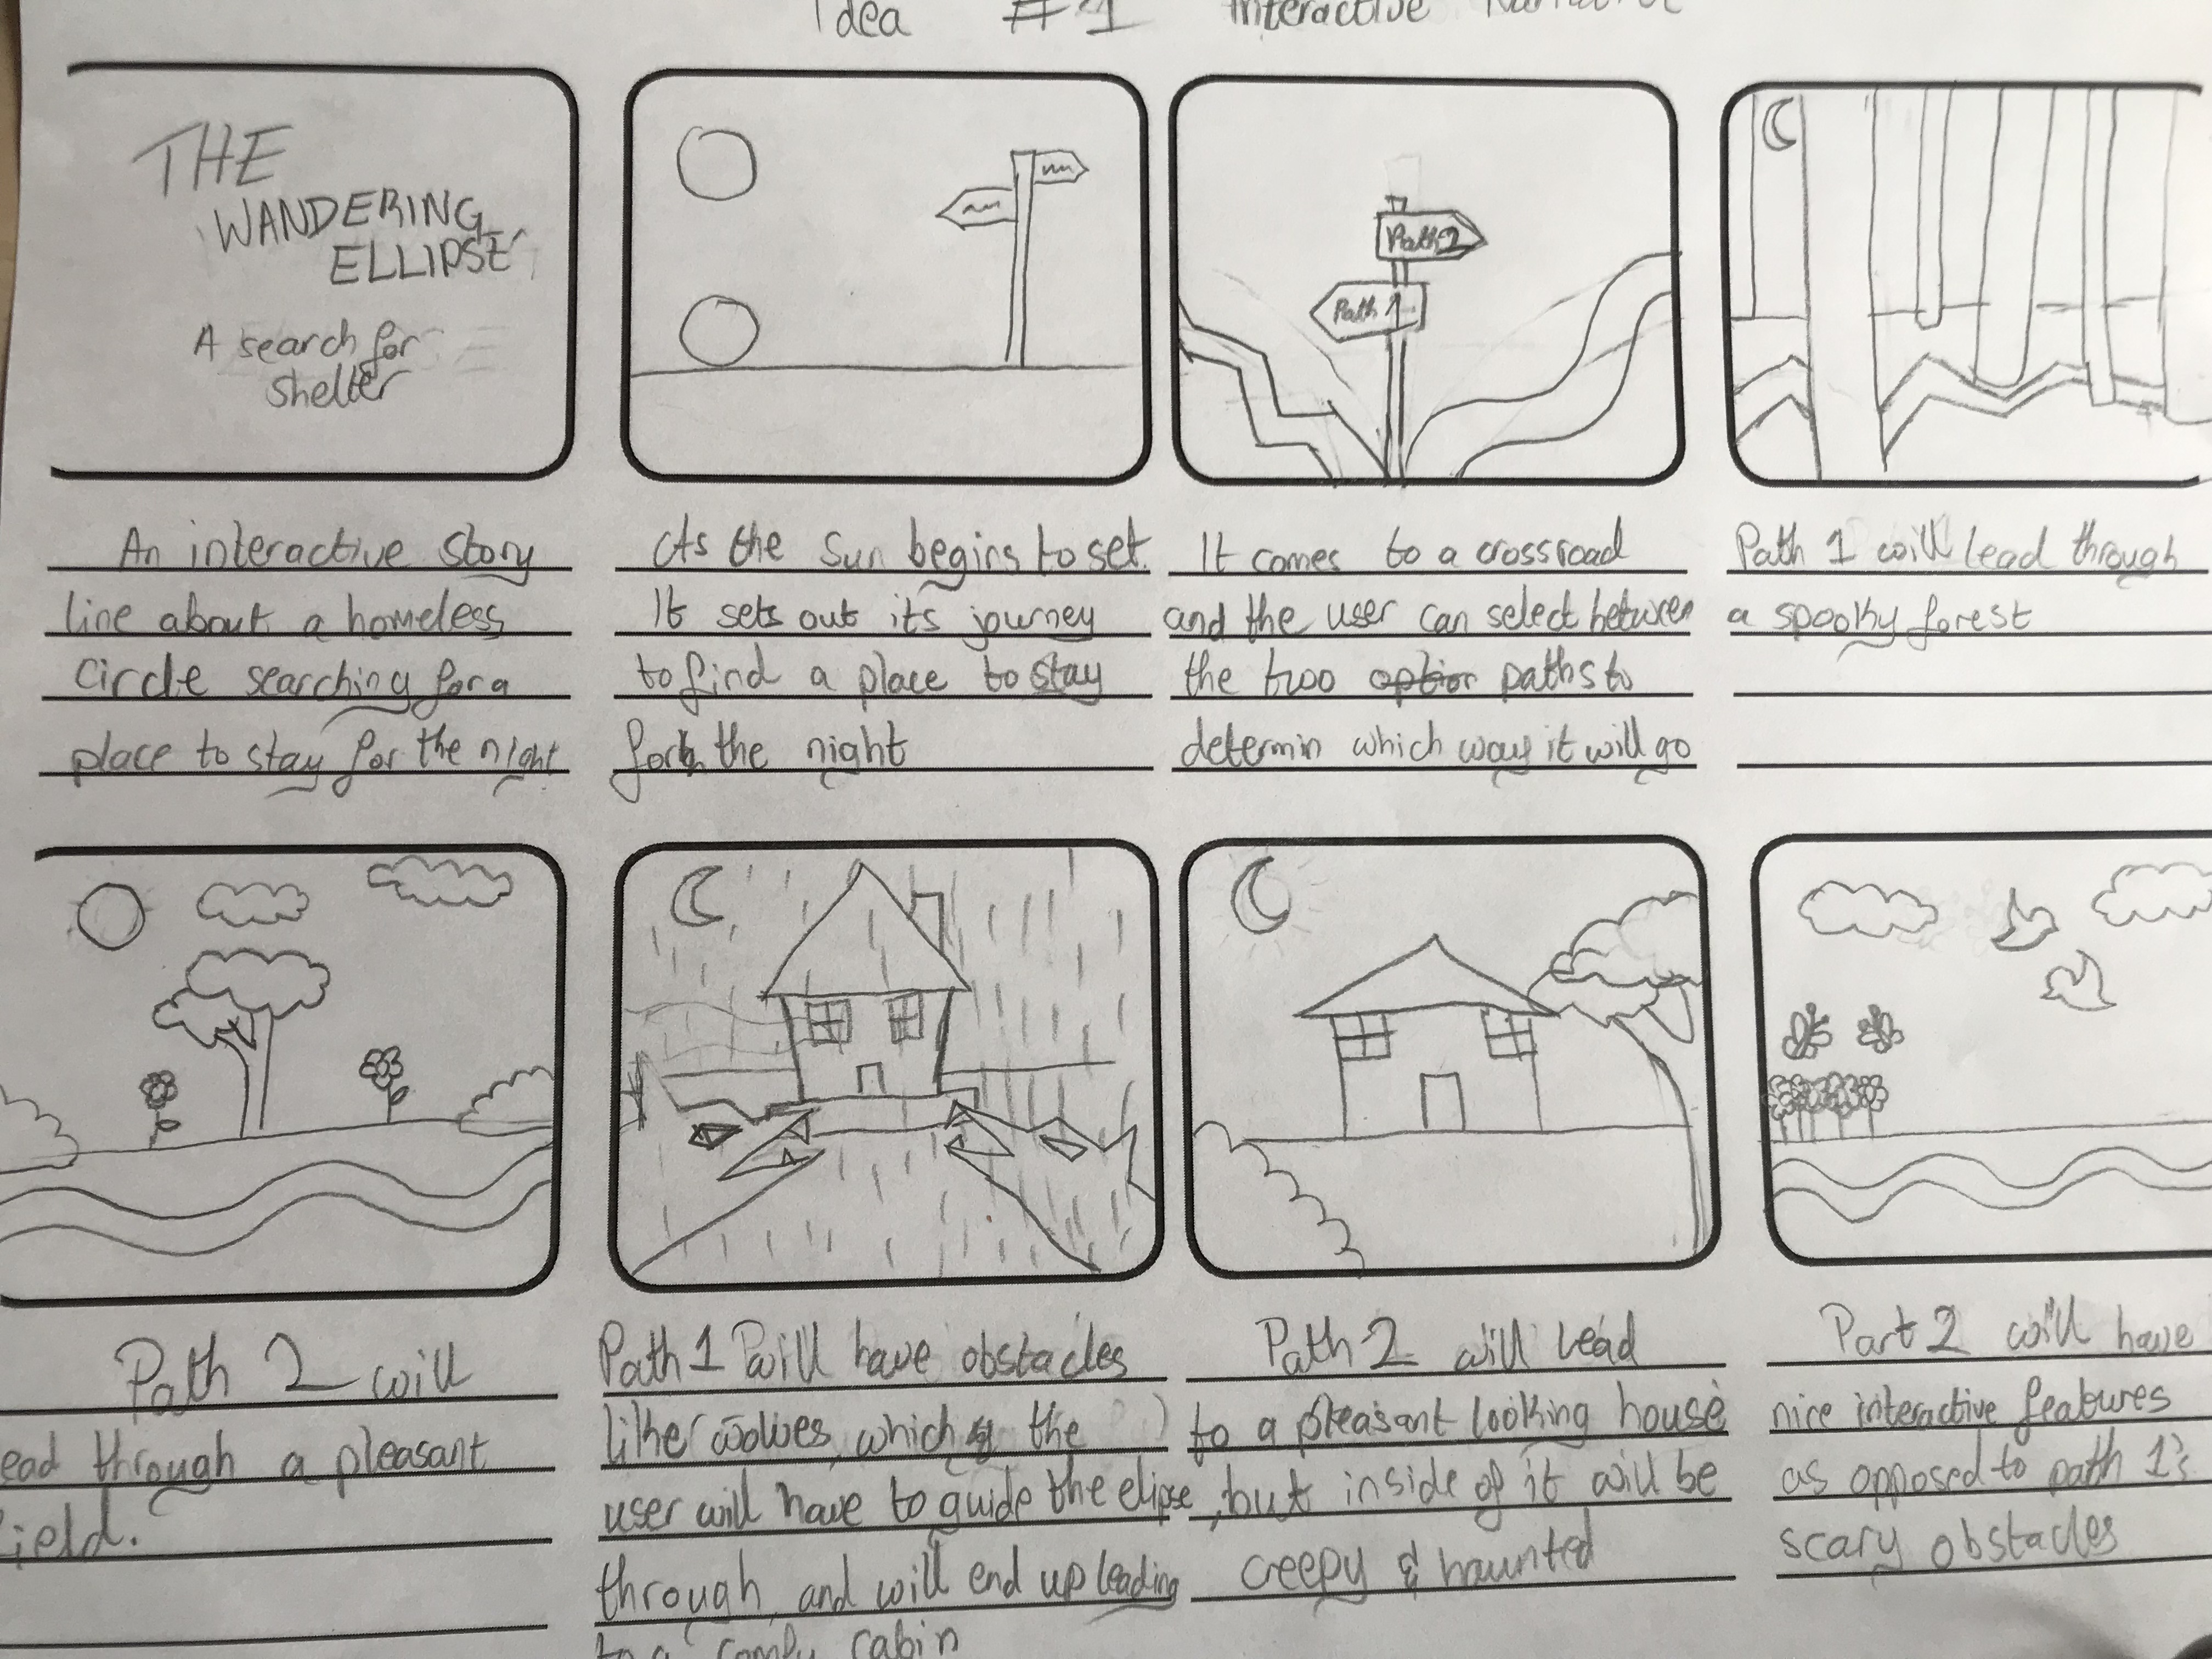 Idea #1 Interactive Narrative
THE
WANDERING
ELLIPSE
A search for
shelter
Path 2
Path 1
An interactive story
line about a homeless
circle searching for a
place to stay for the night
As the Sun begins to set.
It sets out its journey
to find a place to stay
for the night
It comes to a crossroad
and the user can select between
the two option paths to
determin which way it will go
Path 1 will lead through
a spooky forest
Path 2 will
ead through a pleasant
ield.
Path 1 will have obstacles
like wolves, which the
user will have to guide the elipse
through, and will end up leading
to a comfy cabin
Path 2 will lead
to a pleasant looking house
, but inside of it will be
creepy & haunted
Part 2 will have
nice interactive features
as opposed to path 1's
scary obstacles